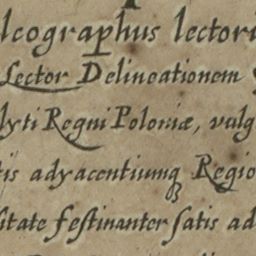 lcographus lectori
Lector Delineationem
lyti Regni Poloniæ, vulg
ijs adyacentiumq Regio
sitate festinanter satis ad